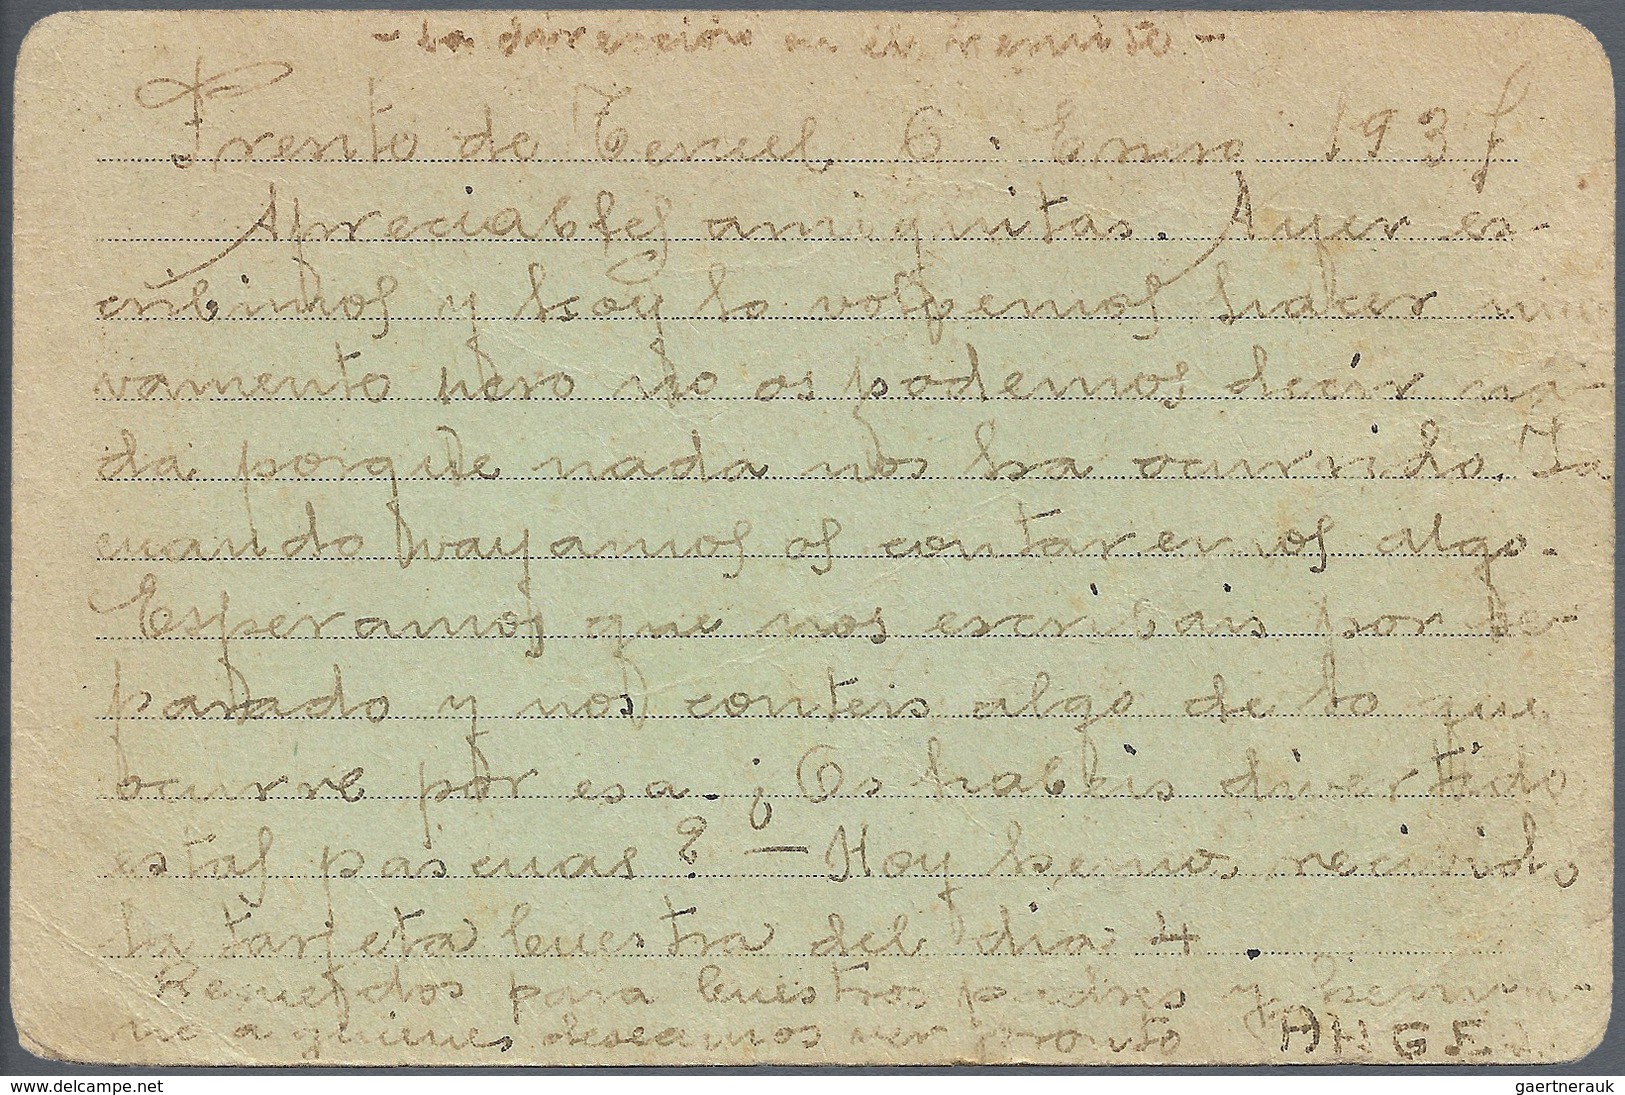 - La direccion en el remite -
Frente de Teruel 6. Enero 1937
Apreciables amiguitas. Ayer es-
cribimos y hoy lo volvemos hacer nue
vamente pero no os podemos decir na-
da porque nada nos ha ocurrido. Ya
cuando vayamos os contaremos algo.
Esperamos que nos escribais por se-
parado y nos conteis algo de lo que
ocurre por esa. ¿Os habeis divertido
estas pascuas? - Hoy hemos recivido
la tarjeta buestra del dia 4.
Recuerdos para buestros padres y herma-
no a quienes deseamos ver pronto ANGEL
delcampe.net
gaertnerauk